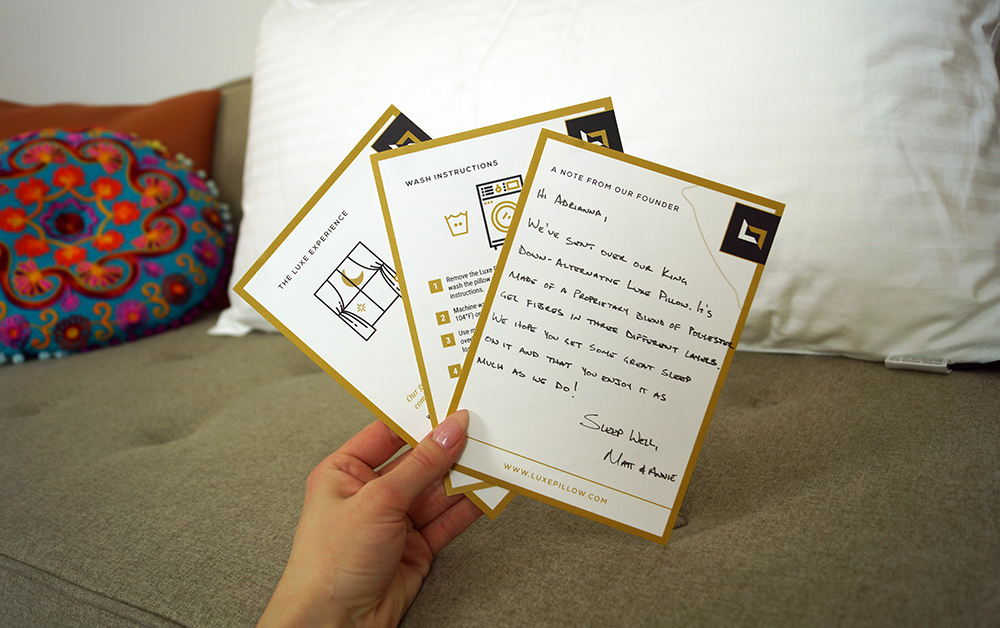 THE LUXE EXPERIENCE
WASH INSTRUCTIONS
1 Remove the Luxe
wash the pillow
instructions.
2 Machine
104°F)
3 Use
4
A NOTE FROM OUR FOUNDER
HI ADRIANNA,
WE'VE SENT OVER OUR KING
DOWN-ALTERNATIVE LUXE PILLOW. IT'S
MADE OF A PROPRIETARY BLEND OF POLYESTER
GEL FIBRES IN THREE DIFFERENT LAYERS.
WE HOPE YOU GET SOME GREAT SLEEP
ON IT AND THAT YOU ENJOY IT AS
MUCH AS WE DO!
SLEEP WELL,
MATT & ANNIE
WWW.LUXEPILLOW.COM